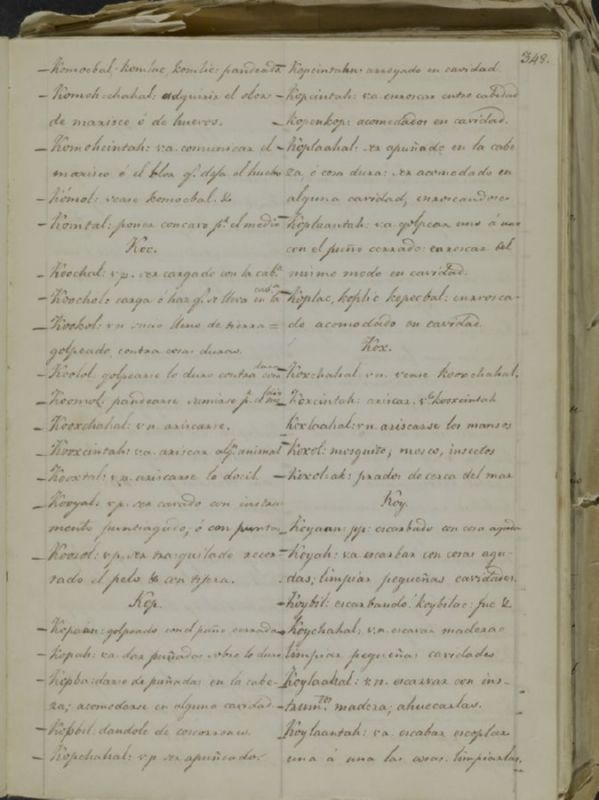 348.
— Komocbal. Komlac, komlic: pandeado
— Komoh:chahal: adquirir el olor
de marisco ó de huevos.
— Komohcintah: va. comunicar el
marisco ó el olor q.e deja el huevo
— Kómol: vease komocbal. &
— Komtal: poner concavo p.r el medio
Koo.
— Koochal: vp. ser cargado con la cab.a
— Koochol: carga ó haz q.e se lleva en la cab.a
— Kookol: vn sucio lleno de tierra =
golpeado contra cosas duras.
— Koolol. golpearse lo duro contra duro
— Koomol: pandearse sumirse p.r el
— Kooxchahal: vn. ariscarse.
— Kooxcintah: va. ariscar alg.n animal
— Kooxtal: vn. ariscarse lo docil.
— Kooyal: vp. ser cavado con instru
mento puntiagudo, ó con punta
— Koozol: vp. ser trasquilado recor-
tado el pelo & con tijera.
Kop.
— Kopaan: golpeado con el puño cerrado
— Kopah: va. dar puñadas sobre lo duro
— Kopba: darse de puñadas en la cabe-
za; acomodarse en alguna cavidad.
— Kopbil: dandole de coscorrones.
— Kopchahal: vp ser apuñeado.
— Kopcintahn: arrojado en cavidad.
— Kopcintah: va enroscar entre cabidad
— Kopenkop: acomodados en cavidad.
— Koplaahal: ser apuñado en la cabe
za, ó cosa dura: ser acomodado en
alguna cavidad, enroscandose
— Koplaantah: va. golpear uno á uno
con el puño cerrado: enroscar del
mismo modo en cavidad.
— Koplac, koplic kopocbal: enrosca-
do acomodado en cavidad.
Kox.
— Koxchahal vn. vease kooxchahal.
— Koxcintah: ariscar. v.e kooxcintah
Koxlaahal: vn. ariscarse los mansos
— Koxol: mosquito, mosco, insectos
— Koxol:ak: prados de cerca del mar
Koy
— Koyaan: pp: escarbado con cosa aguda
— Koyah: va escarbar con cosas agu-
das; limpiar pequeñas cavidades.
— Koybil: escarbando: koybilac: fue &.
— Koychahal: vn. escavar madera
limpiar pequeñas cavidades
— Koylaahal: vn. escarvar con ins-
trum.tos madera; ahuecarlas.
— Koylaantah: va. escabar escoplar
una á una las cosas. limpiarlas.